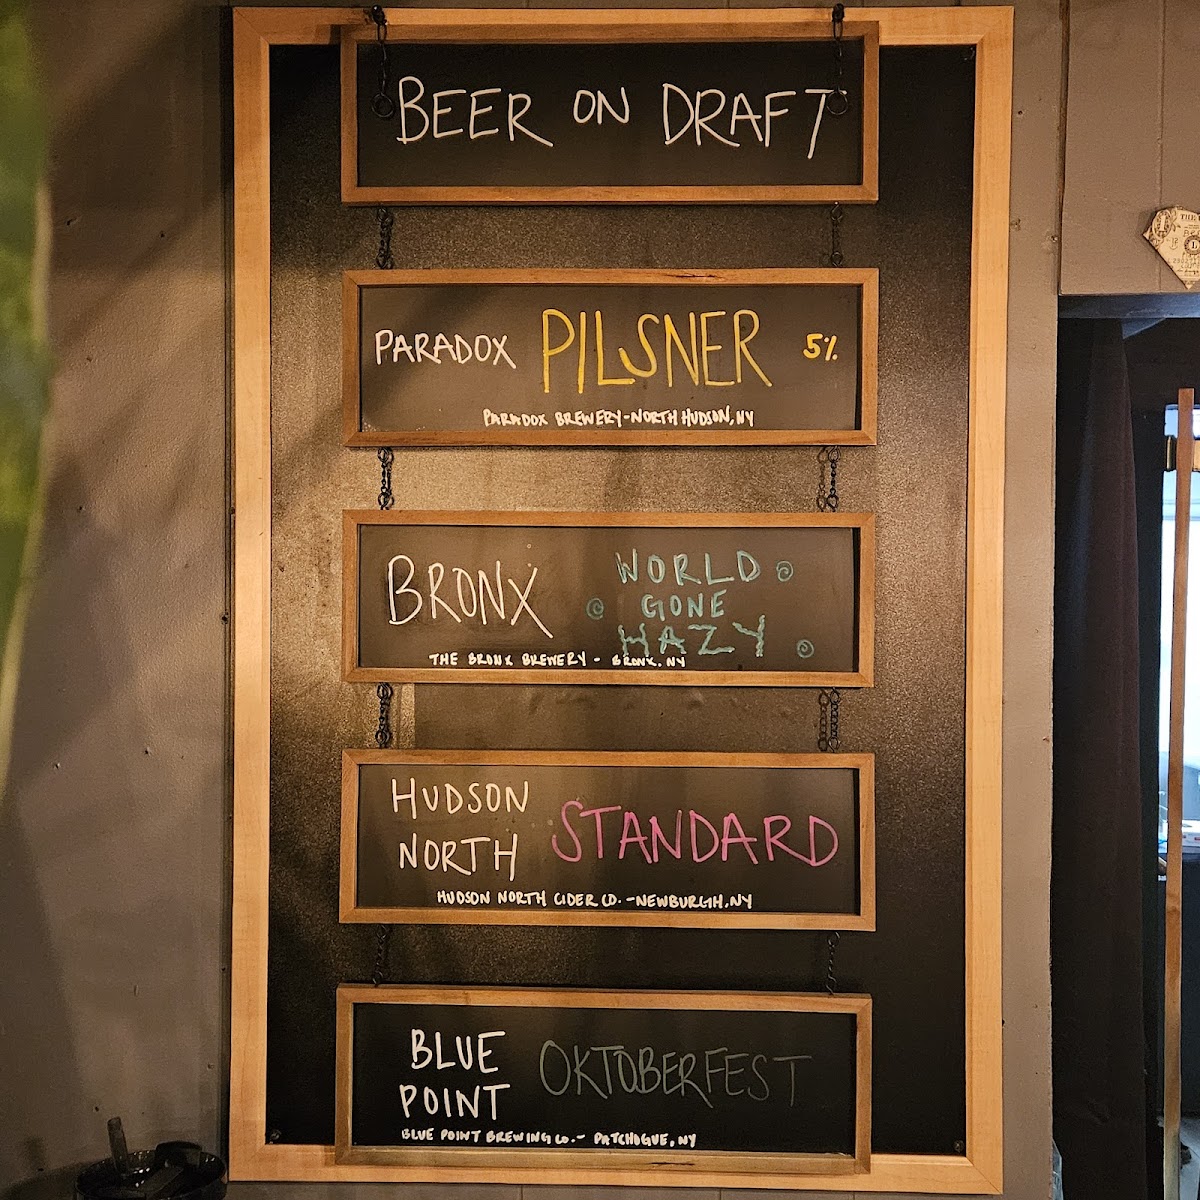 BEER ON DRAFT
PARADOX PILSNER 5%
PARADOX BREWERY-NORTH HUDSON, NY
BRONX
WORLD
GONE
HAZY
THE BRONX BREWERY - BRONX, NY
HUDSON
NORTH
STANDARD
HUDSON NORTH CIDER CO. -NEWBURGH, NY
BLUE
POINT
OKTOBERFEST
BLUE POINT BREWING CO.- PATCHOGUE, NY
THE